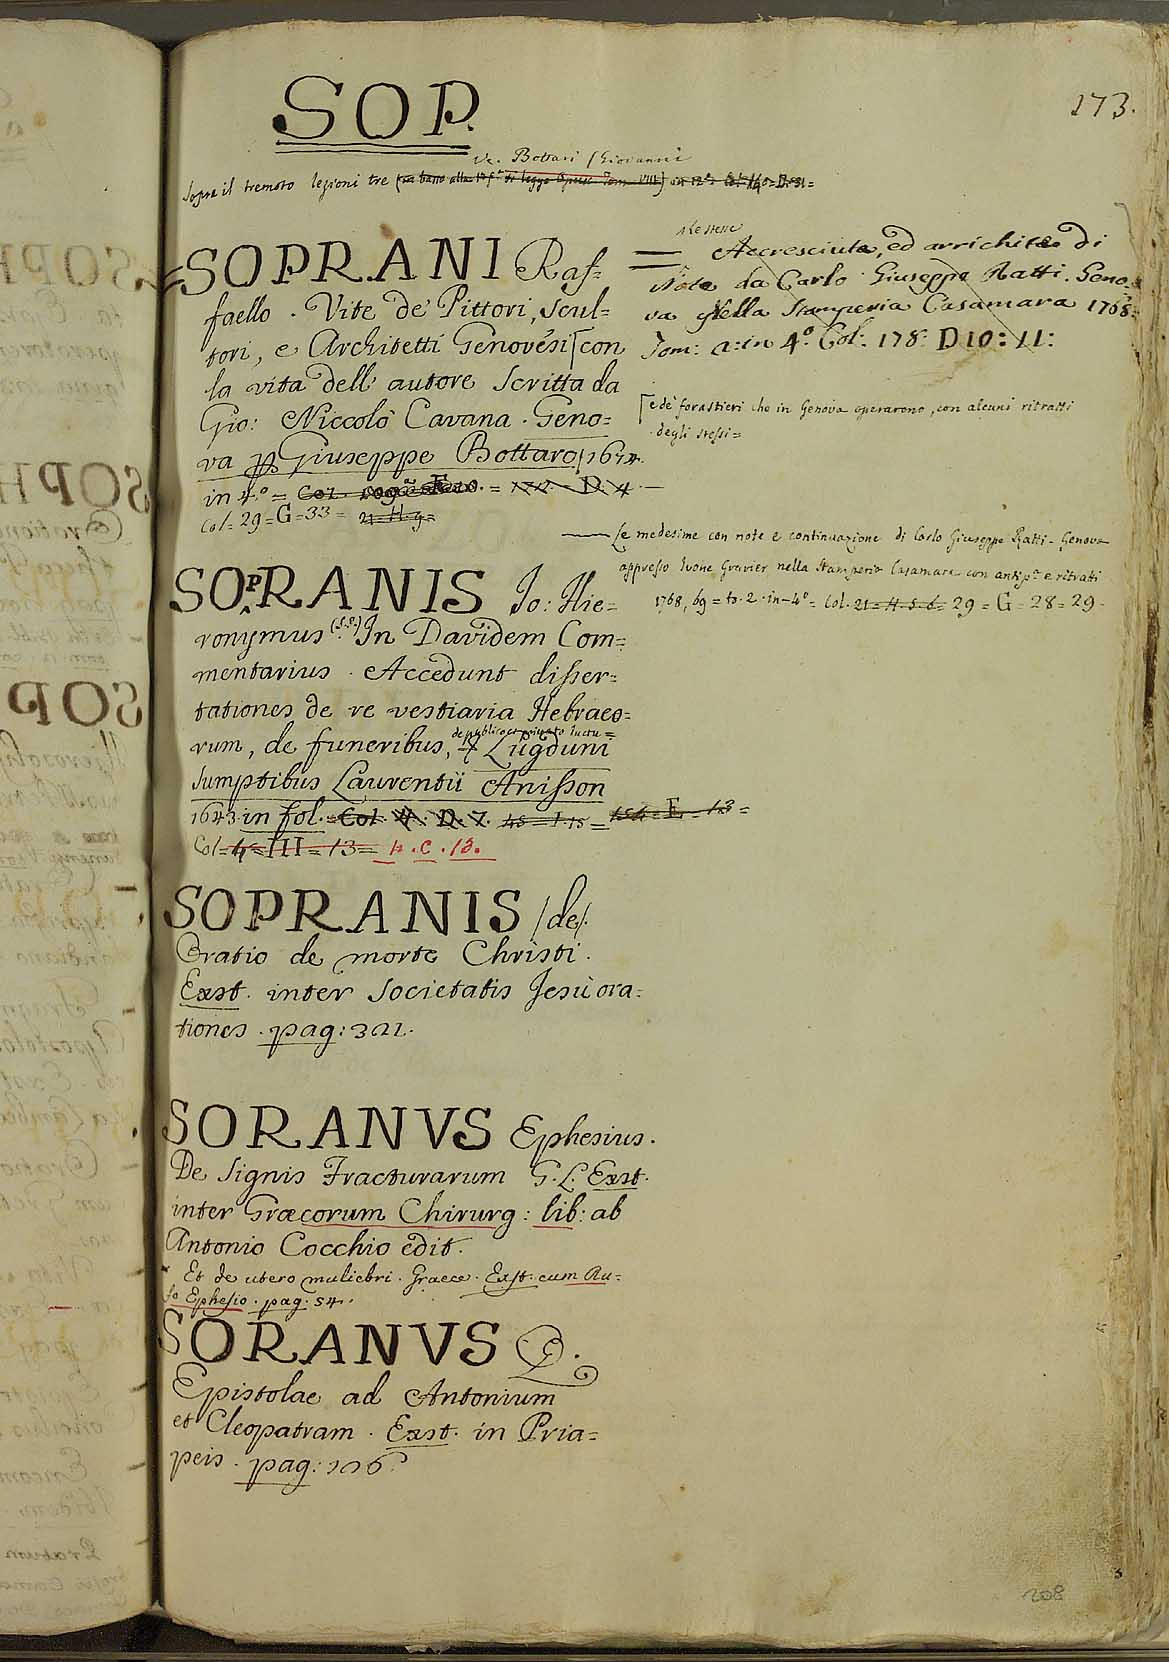 173.
SOP.
Ve. Bottari /Giovanni
Sopra il tremoto lezioni tre
SOPRANI Raf=
faello. Vite de' Pittori, Scul=
tori, e Architetti Genovesi [con
la vita dell' autore scritta da
Gio: Niccolò Cavana. Geno=
va p Giuseppe Bottaro /1674.
in 4.º =
Col = 29 = G = 33 = 21 = H. 9 =
= Accresciute, ed arrichite di
Note da Carlo Giuseppe Ratti. Geno=
va nella Stamperia Casamara 1768:
Tom: 2: in 4º Col: 178: D 10: 11:
[e de' forastieri che in Genova operarono, con alcuni ritratti
degli stessi =
Le medesime con note e continuazione di Carlo Giuseppe Ratti - Genova
appresso Ivone Gravier nella Stamperia Casamara con antip.ª e ritratti
1768, 69 = to. 2. in - 4º = Col. 21 = H. 5. 6 = 29 = G = 28 = 29 -
SOPRANIS Jo: Hie=
ronymus (S.J.) In Davidem Com=
mentarius. Accedunt disser=
tationes de re vestiaria Hebraeo=
rum, de funeribus, de publico et privato luctu = Lugduni
sumptibus Laurentii Anisson
1643 in fol. = Col. 4. D. 7. 45 = I. 15 = 154 = E = 13 =
Col = 4 = III = 13 = H. C. 13.
SOPRANIS /de/.
Oratio de morte Christi.
Exst. inter Societatis Jesù ora=
tiones. pag: 321.
SORANVS Ephesius.
De Signis Fracturarum G. L. Exst.
inter Græcorum Chirurg: lib: ab
Antonio Cocchio edit.
Et de utero muliebri. Graece. Exst. cum Ru=
fo Ephesio. pag: 54.
SORANVS Q.
Epistolae ad Antonium
et Cleopatram. Exst. in Pria=
peis. pag: 106.
208